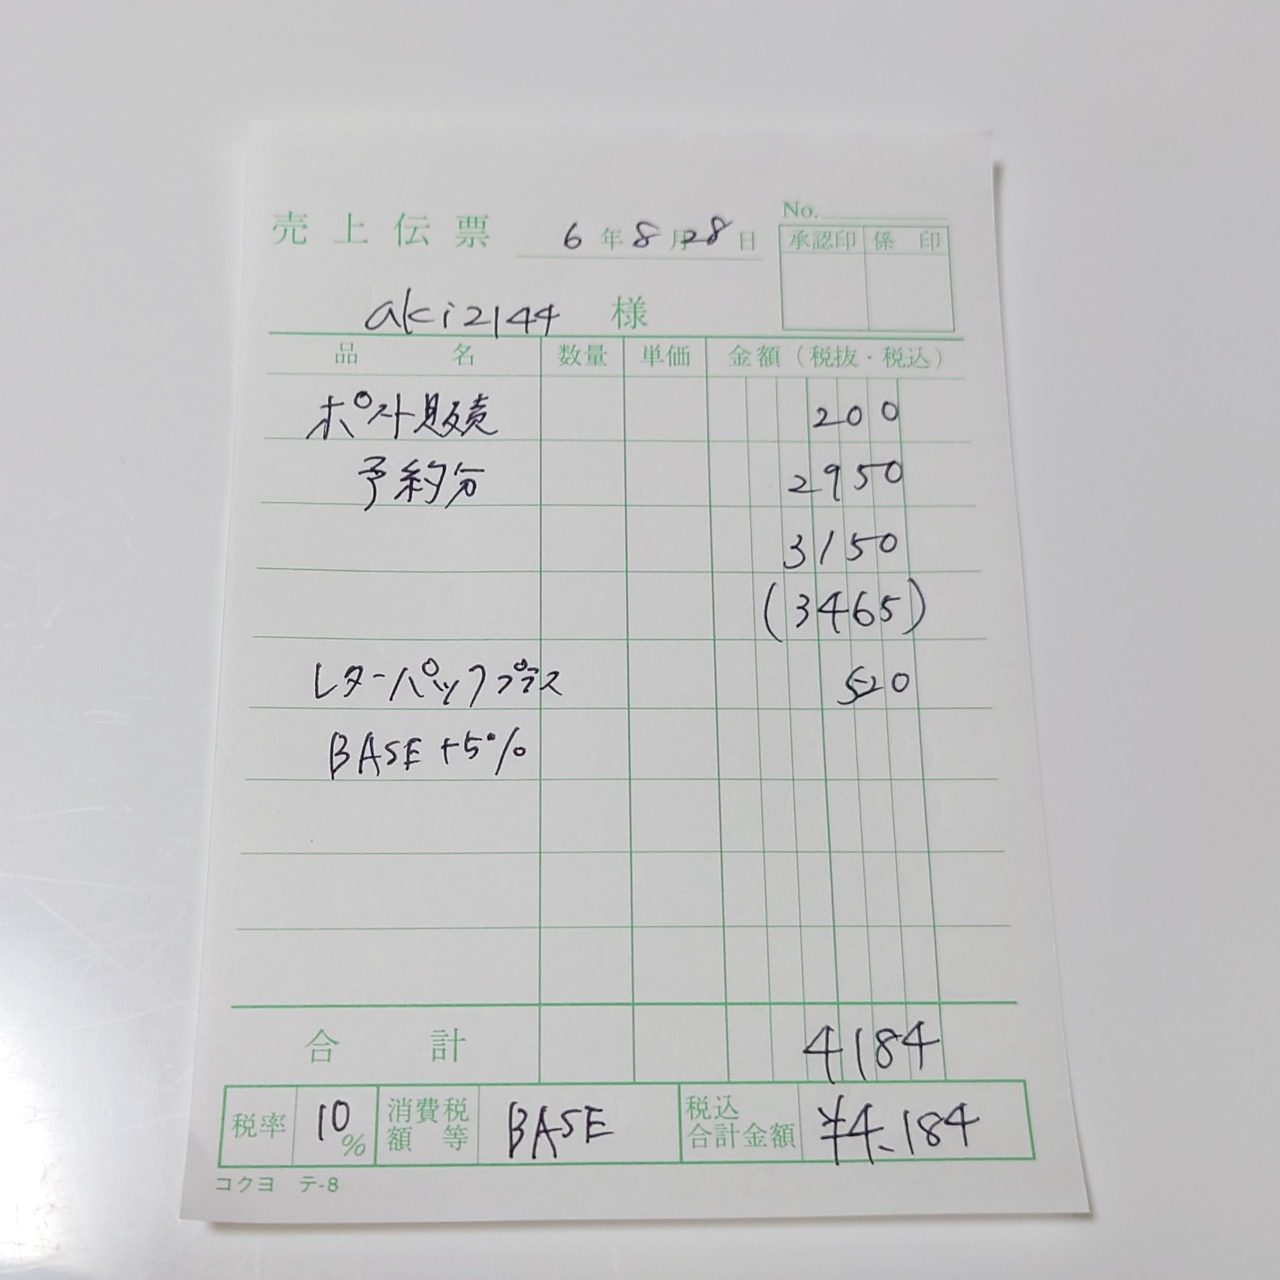 売上伝票 6年8月28日 No.
承認印 係印
aki2144 様
品名 数量 単価 金額（税抜・税込）
ポスト販売 200
予約分 2950
3150
(3465)
レターパックプラス 520
BASE+5%
合計 4184
税率 10% 消費税額等 BASE 税込合計金額 ¥4,184
コクヨ テ-8